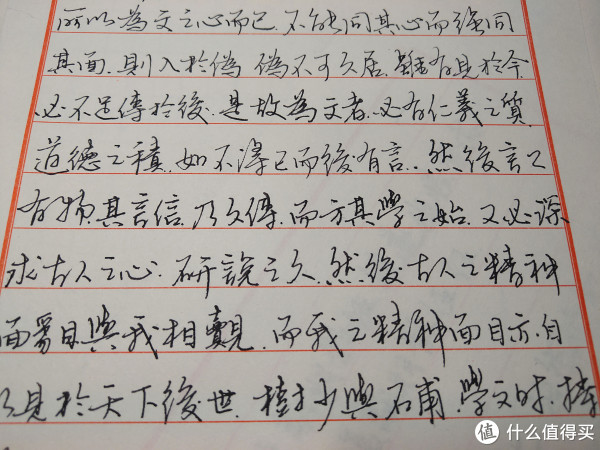 所以為文之心而已.不能同其心而強同
其面.則入於偽.偽不可久居.雖有見於今
必不足傳於後.是故為文者.必有仁義之質
道德之積.如不得已而後有言.然後言之
有物.其言信.乃久傳.而方其學之始.又必深
求古人之心.研說之久.然後古人之精神
面目與我相覿.而我之精神面目亦自
以見於天下後世.植少與石甫學文時.捧
值 什么值得买